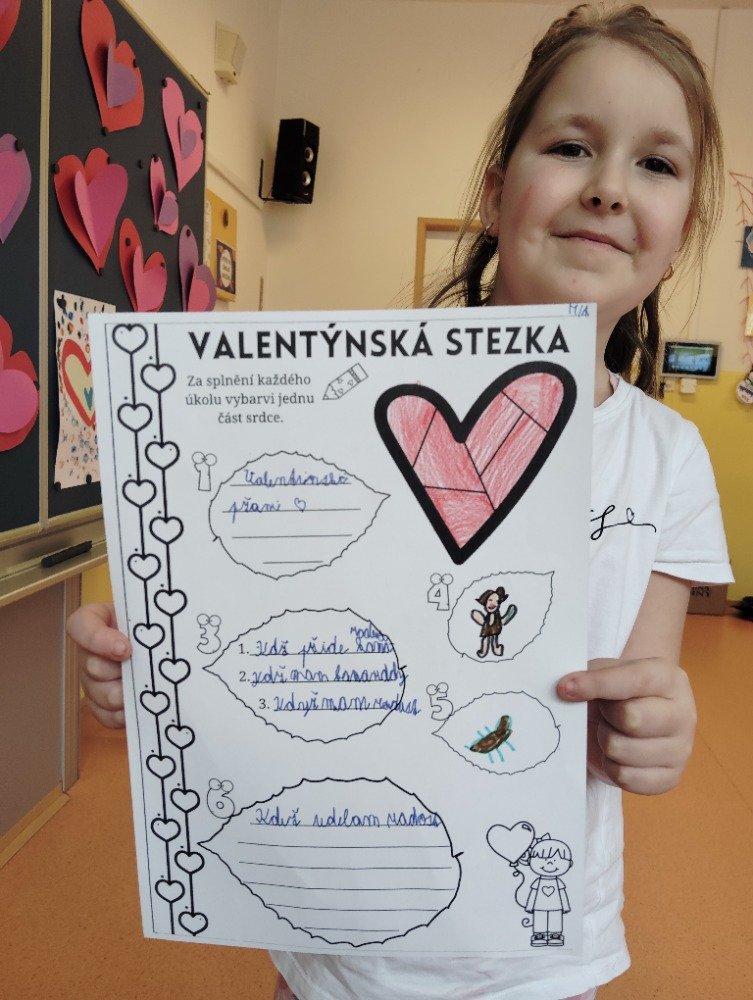 VALENTÝNSKÁ STEZKA
Za splnění každého
úkolu vybarvi jednu
část srdce.
1
Valentinsko
přani ♡
3
1. Kdž příde
2. Kdž mam
3. Když mam
4
5
6
Kdež udelam radost